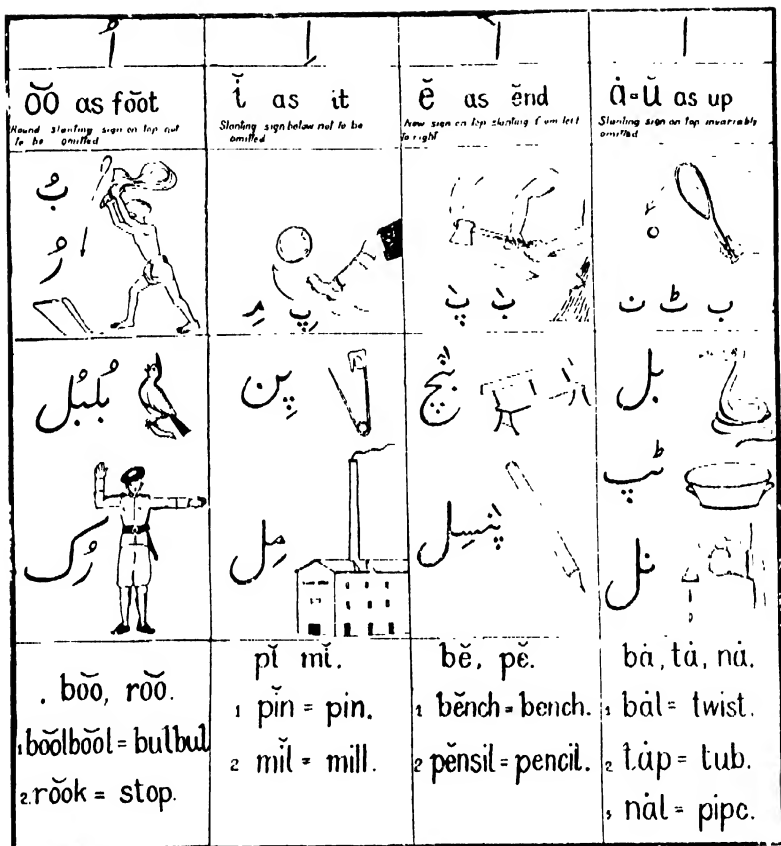 اُ
o͝o as fo͝ot
Round slanting sign on top not to be omitted
بُ
رُ
بُلبُل
رُک
. bo͝o, ro͝o.
1 bo͝olbo͝ol = bulbul
2. ro͝ok = stop.
اِ
ĭ as it
Slanting sign below not to be omitted
پِ مِ
پِن
مِل
pĭ mĭ.
1 pĭn = pin.
2 mĭl = mill.
ا̀
ĕ as ĕnd
New sign on top slanting from left to right
ب̀ پ̀
ب̀نچ
پ̀نسِل
bĕ, pĕ.
1 bĕnch = bench.
2 pĕnsil = pencil.
ا
ȧ = ŭ as up
Slanting sign on top invariably omitted
ب ٹ ن
بل
ٹپ
نل
bȧ, tȧ, nȧ.
1 bȧl = twist.
2 tȧp = tub.
3 nȧl = pipe.